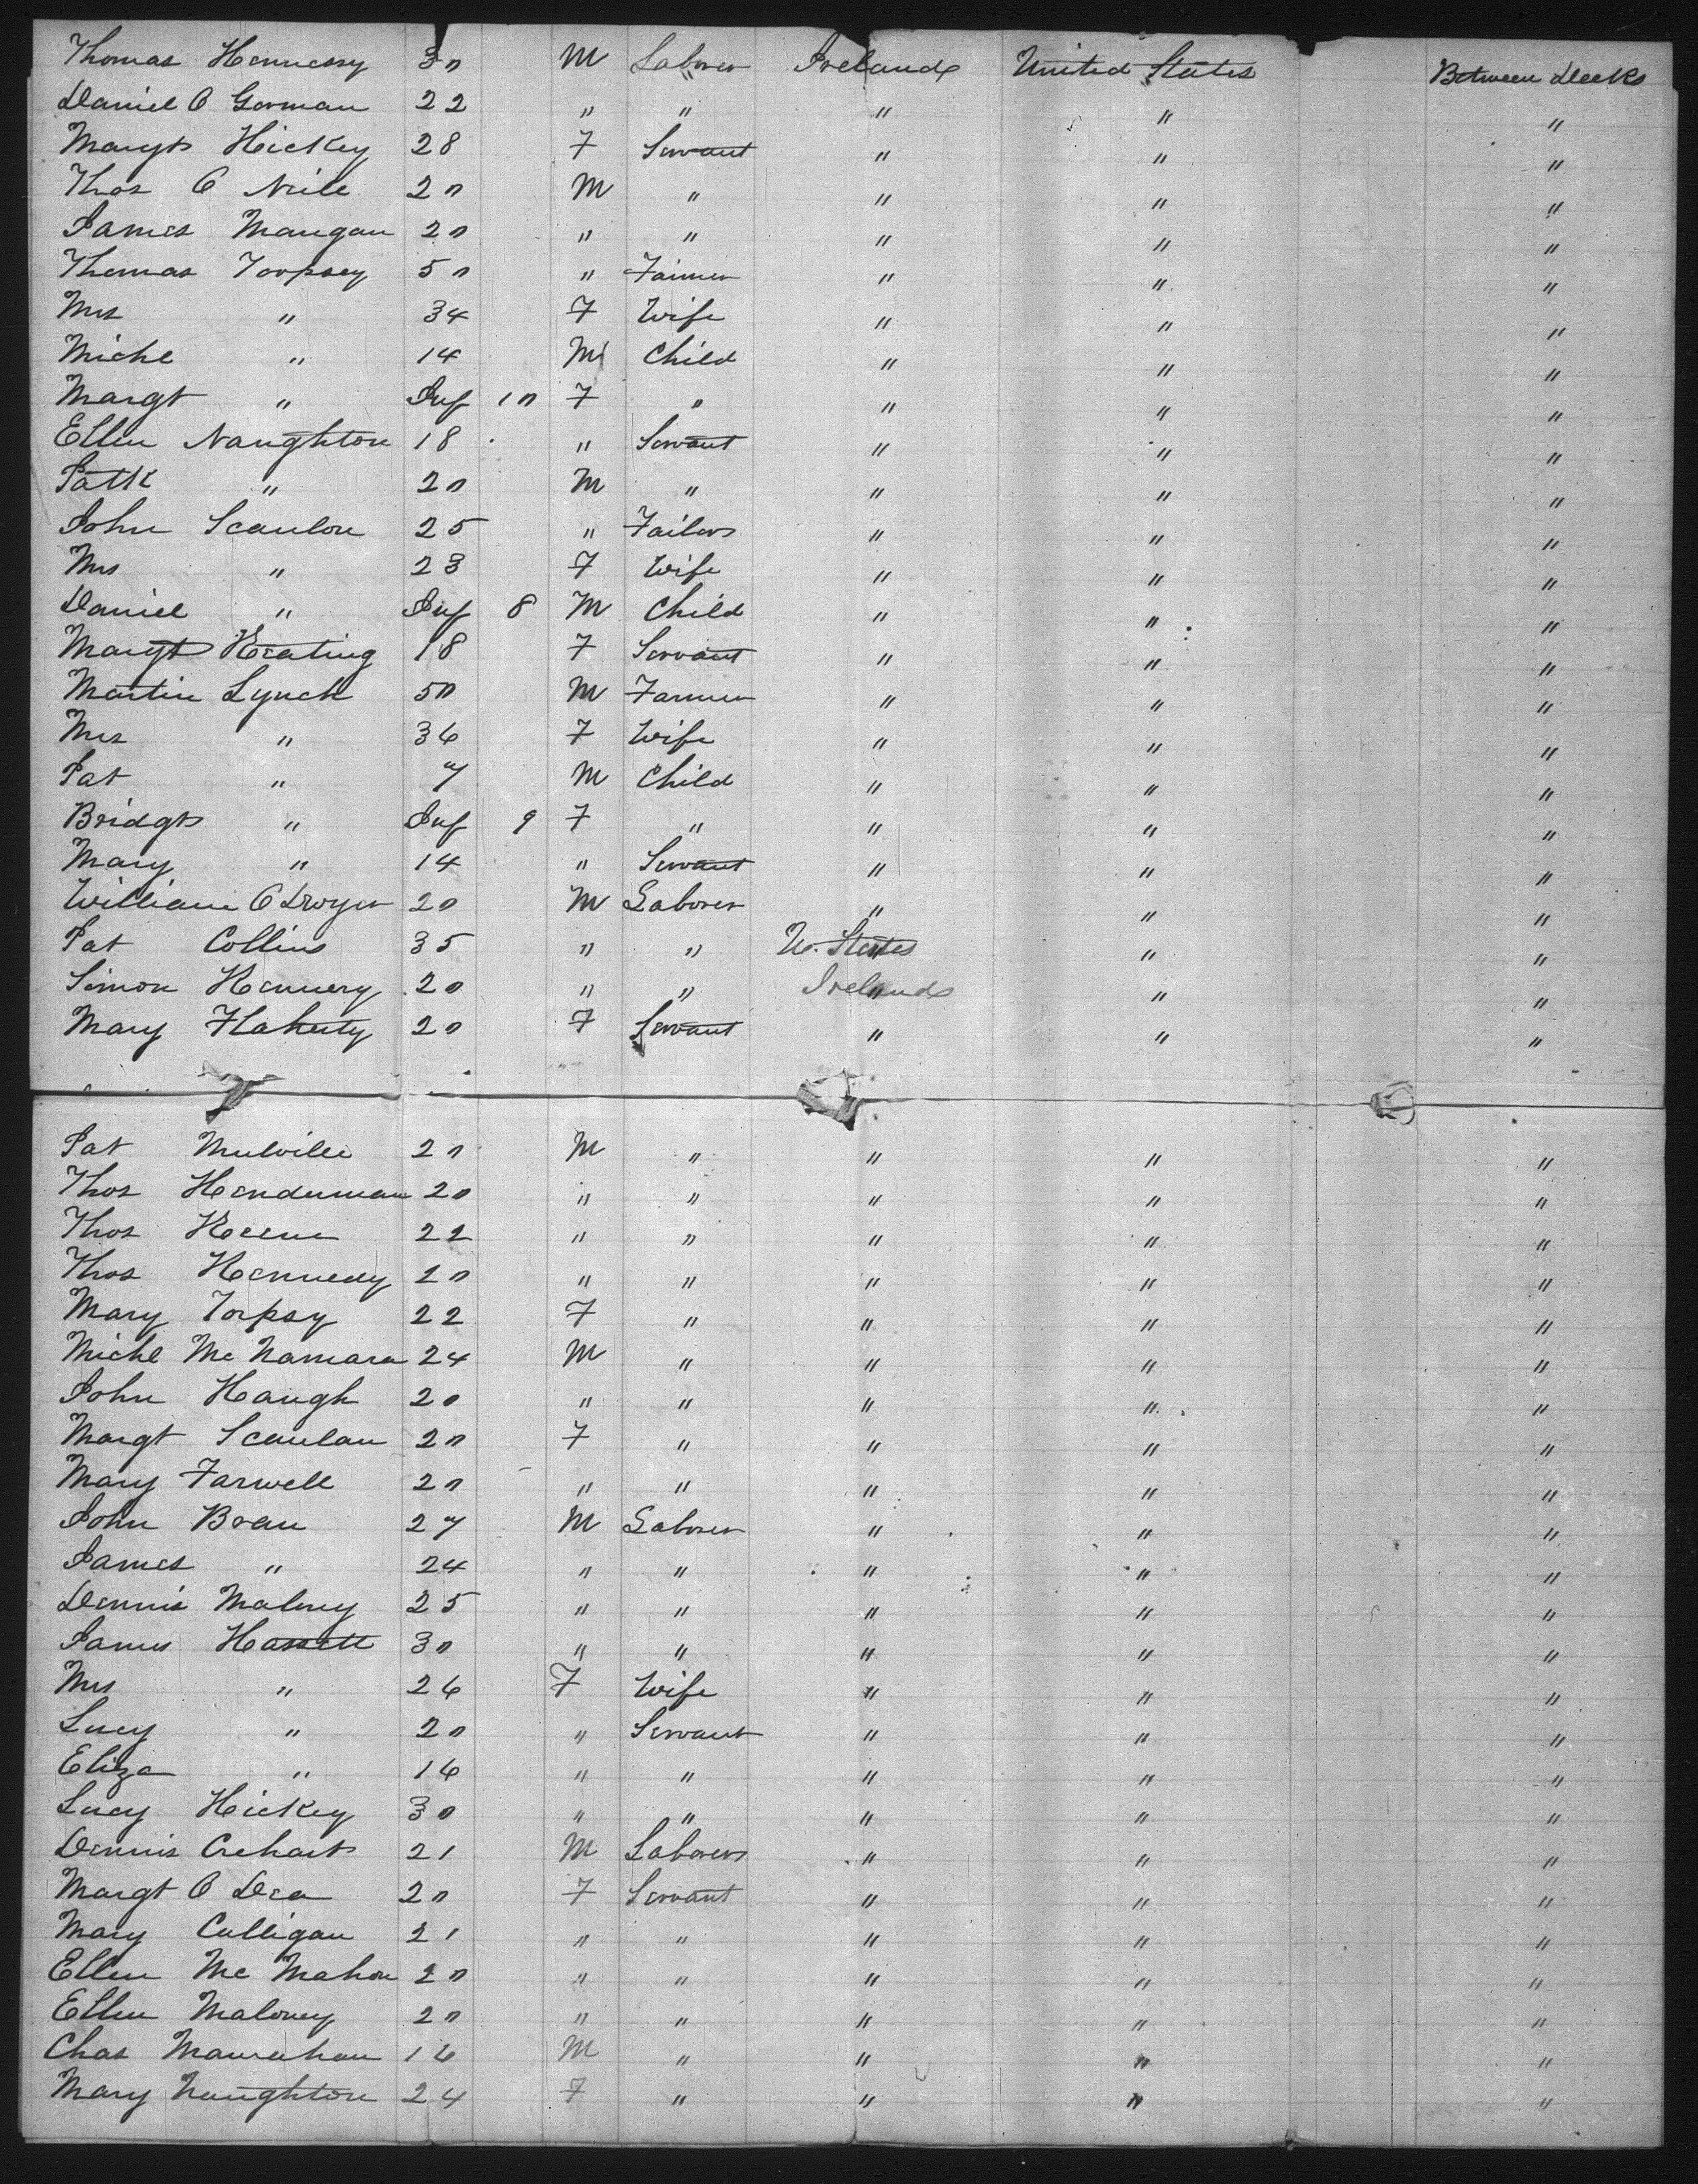 Thomas Hennessy 30 M Laborer Ireland United States Between Decks
Daniel O Gorman 22 " " " " "
Margt Hickey 28 F Servant " " "
Thos O Neile 20 M " " " "
James Mangan 20 " " " " "
Thomas Torpsey 50 " Farmer " " "
Mrs " 34 F Wife " " "
Michl " 14 M Child " " "
Margt " Inf 10 F " " " "
Ellen Naughton 18 " Servant " " "
Patk " 20 M " " " "
John Scanlon 25 " Tailor " " "
Mrs " 23 F Wife " " "
Daniel " Inf 8 M Child " " "
Margt Keating 18 F Servant " " "
Martin Lynch 50 M Farmer " " "
Mrs " 36 F Wife " " "
Pat " 7 M Child " " "
Bridgt " Inf 9 F " " " "
Mary " 14 " Servant " " "
William O Dwyer 20 M Laborer " " "
Pat Collins 35 " " U. States " "
Simon 20 " " Ireland " "
Mary Flaherty 20 F Servant " " "
Pat Mulville 20 M " " " "
Thos Henderman 20 " " " " "
Thos Keene 22 " " " " "
Thos Kennedy 20 " " " " "
Mary Torpsy 22 F " " " "
Michl Mc Namara 24 M " " " "
John Haugh 20 " " " " "
Margt Scanlan 20 F " " " "
Mary Farwell 20 " " " " "
John Bran 27 M Laborer " " "
James " 24 " " " " "
Dennis Malony 25 " " " " "
James Hassett 30 " " " " "
Mrs " 26 F Wife " " "
Lucy " 20 " Servant " " "
Eliza " 16 " " " " "
Lucy Hickey 30 " " " " "
Dennis Crehart 21 M Laborer " " "
Margt O Dea 20 F Servant " " "
Mary Culligan 21 " " " " "
Ellen Mc Mahon 20 " " " " "
Ellen Maloney 20 " " " " "
Chas 16 M " " " "
Mary Naughton 24 F " " " "